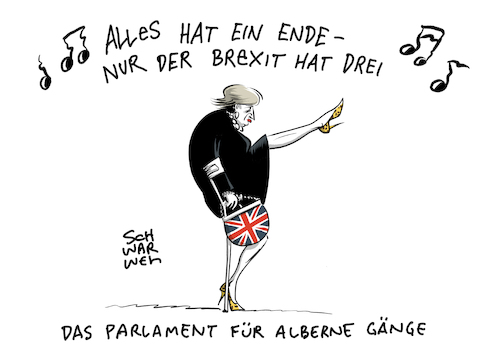 ALLES HAT EIN ENDE –
NUR DER BREXIT HAT DREI
SCH
WAR
WEL
DAS PARLAMENT FÜR ALBERNE GÄNGE